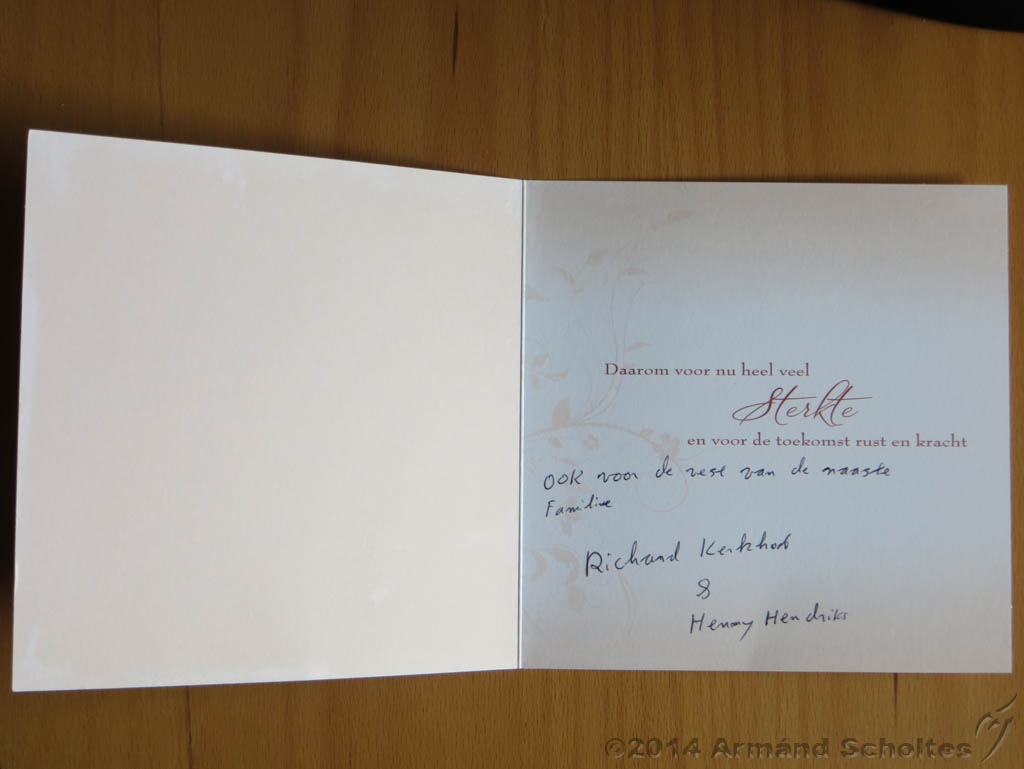 Daarom voor nu heel veel
Sterkte
en voor de toekomst rust en kracht
ook voor de rest van de naaste
Familie
Richard Kerkhof
&
Henny Hendriks
©2014 Armánd Scholtes